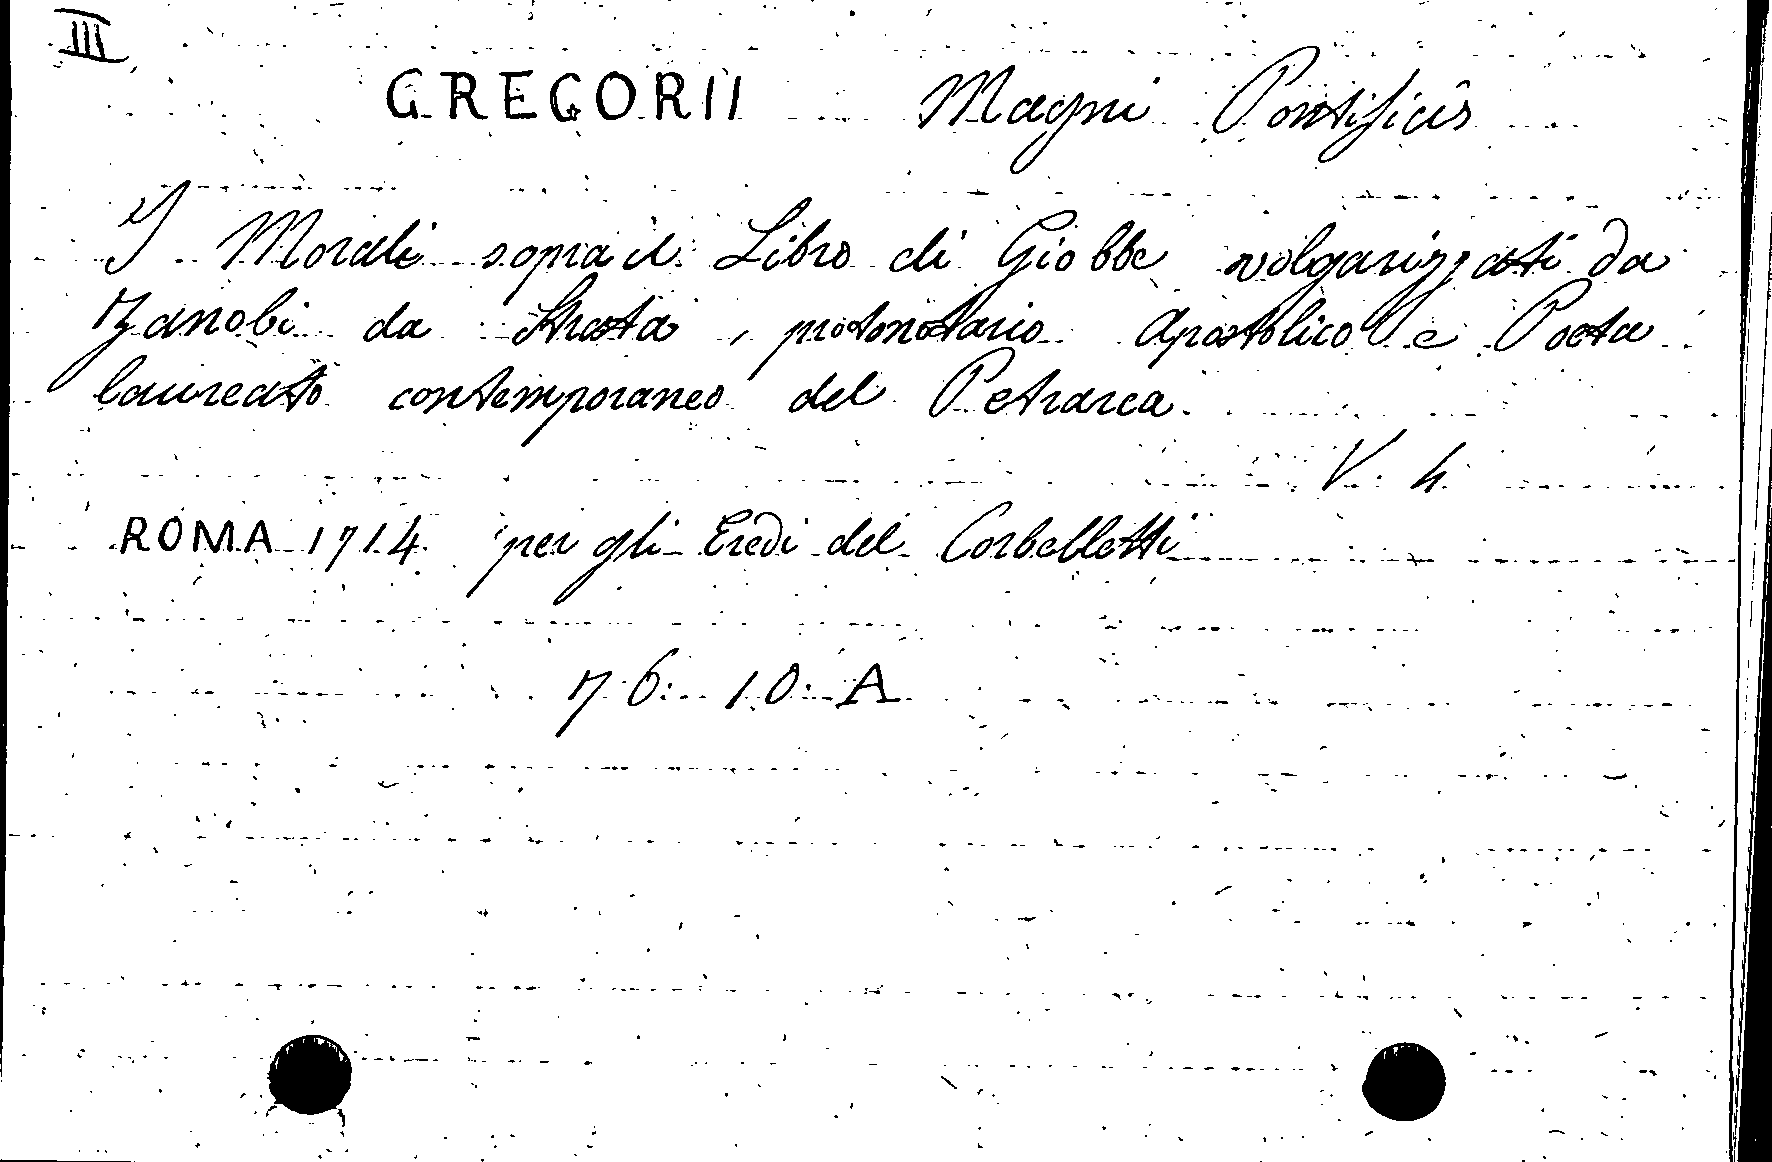 III
GREGORII Magni Pontificis
I Morali sopra il Libro di Giobbe volgarizzati da
Zanobi da Strata, protonotario Apostolico e Poeta
laureato contemporaneo del Petrarca.
V. 4
ROMA 1714 per gli Eredi del Corbelletti
76. 10. A